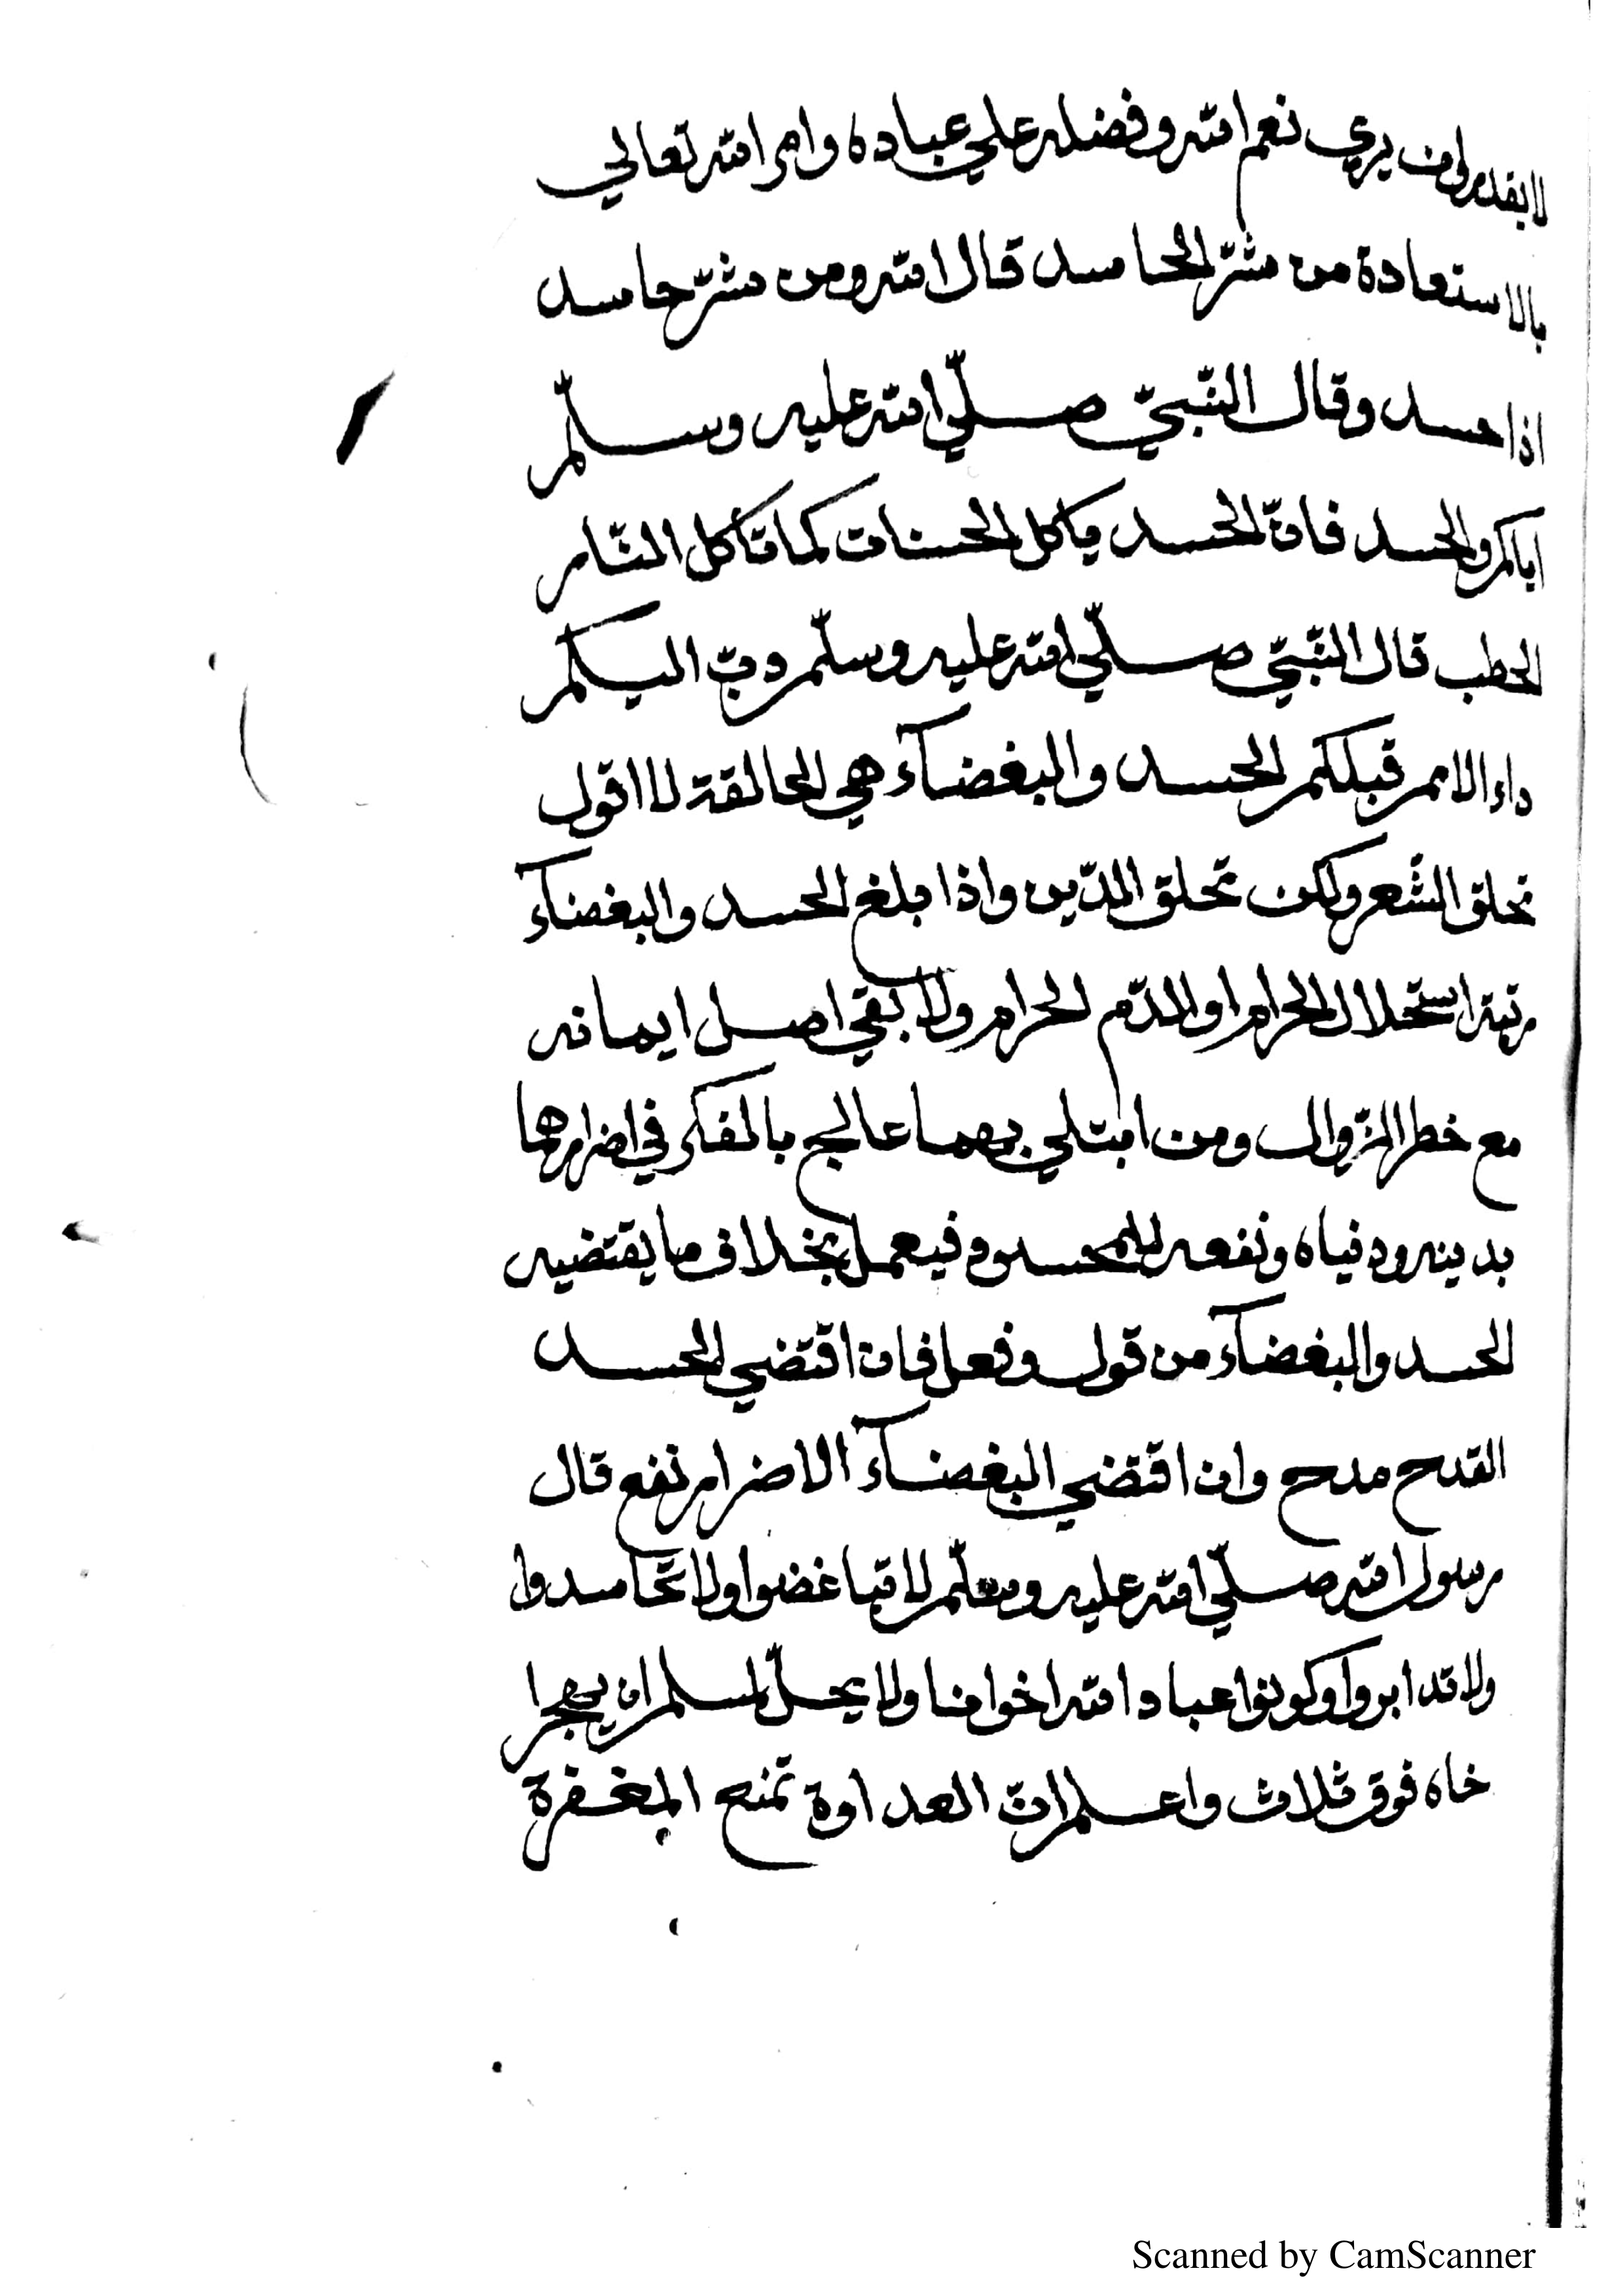 لا يقدر ان يري نعم الله وفضله علي عباده وامر الله تعالي
بالاستعاذة من شرّ الحاسد قال الله ومن شرّ حاسد
اذا حسد وقال النّبيّ صلّي الله عليه وسلّم
اياكم والحسد فانّ الحسد ياكل الحسنات كما تاكل النّار
الحطب قال النّبيّ صلّي الله عليه وسلّم دبّ اليكم
داء الامم قبلكم الحسد والبغضآء هي الحالقة لا اقول
تحلق الشّعر ولكن تحلق الدّين واذا بلغ الحسد والبغضآء
رتبة استحلال الحرام او الدّم الحرام ولا بقي اصل ايمانه
مع خطر الزّوال ومن ابتلي بهما عالج بالفكر في اضرارهما
بدينه ودنياه ونفعه للمحسود فيعمل بخلاف ما يقتضيه
الحسد والبغضآء من قول وفعل فان اقتضي الحسد
القدح مدح وان اقتضي البغضآء الاضرار نفع قال
رسول الله صلّي الله عليه وسلّم لا تباغضوا ولا تحاسدوا
ولا تدابروا وكونوا عباد الله اخوانا ولا يحلّ لمسلم ان يهجر ا
خاه فوق ثلاث واعلم انّ العداوة تمنع المغفرة
Scanned by CamScanner